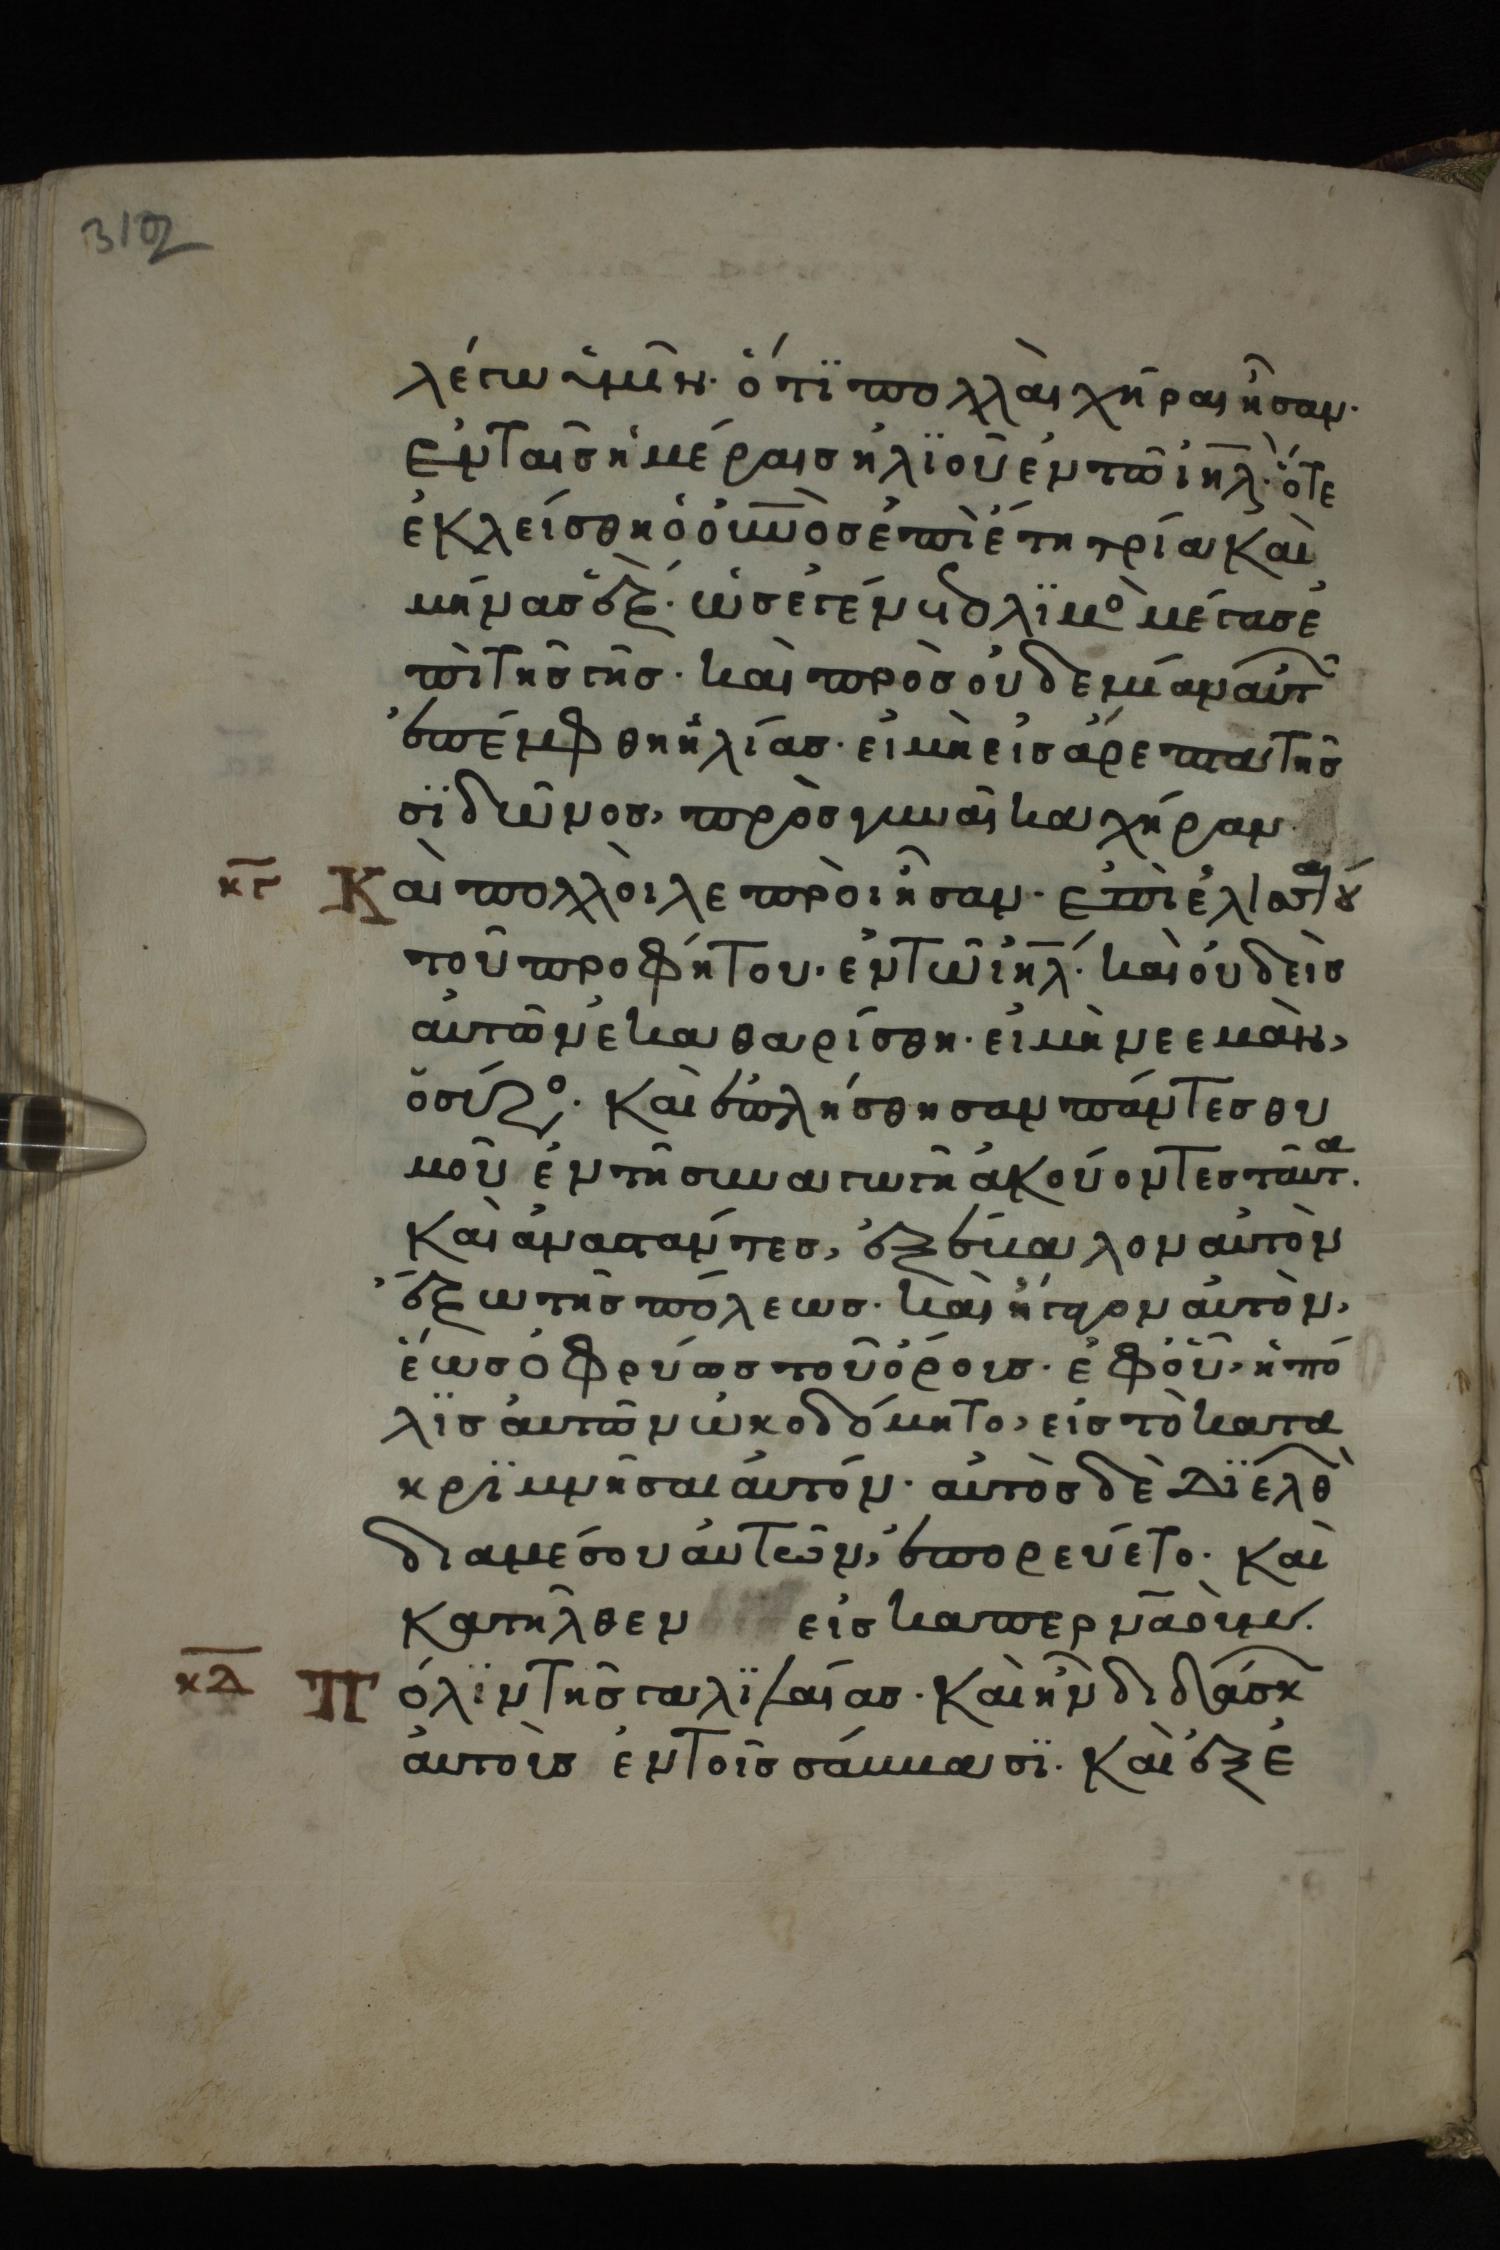 312
λέγω ὑμῖν. ὅτϊ πολλαὶ χῆραι ἦσαν.
ἐν ταῖς ἡμέραις ἠλϊοῦ ἐν τῶ ἰηλ. ὅτε
ἐκλείσθη ὁ οὐνὸς ἐπὶ ἔτη τρία καὶ
μήνας ἓξ. ὡς ἐγένετο λϊμὸ μέγας ἐ
πὶ τῆς γῆς. καὶ πρὸς οὐδεμίαν αὐτ
ἐπέμφθη ἠλίας. εἰ μὴ εἰς ἄρεπτα τῆς
σϊδῶνος, πρὸς γυναῖκα χήραν.
κγ Καὶ πολλοὶ λεπροὶ ἦσαν. ἐπὶ ἐλισαίου
τοῦ προφήτου. ἐν τῶ ἰηλ. καὶ οὐδεὶς
αὐτῶν ἐκαθαρίσθη. εἰ μὴ νεεμὰν,
ὁ σύρο. καὶ ἐπλήσθησαν πάντες θυ
μοῦ ἐν τῆ συναγωγῆ ἀκούοντες ταῦτα.
καὶ ἀναστάντες, ἐξέβαλον αὐτὸν
ἔξω τῆς πόλεως. καὶ ἤγαγον αὐτὸν,
ἕως ὀφρύος τοῦ ὄρους. ἐφ οὗ, ἡ πό
λϊς αὐτῶν ὠκοδόμητο, εἰς τὸ κατα
κρϊμνῆσαι αὐτόν. αὐτὸς δὲ Δϊελθ
δια μέσου αὐτῶν, ἐπορεύετο. καὶ
κατῆλθεν εἰς καπερναοὺμ.
κΔ Πόλϊν τῆς γαλϊλαίας. καὶ ἦν διδάσκ
αὐτοὺς ἐν τοῖς σάββασϊ. καὶ ἐξε